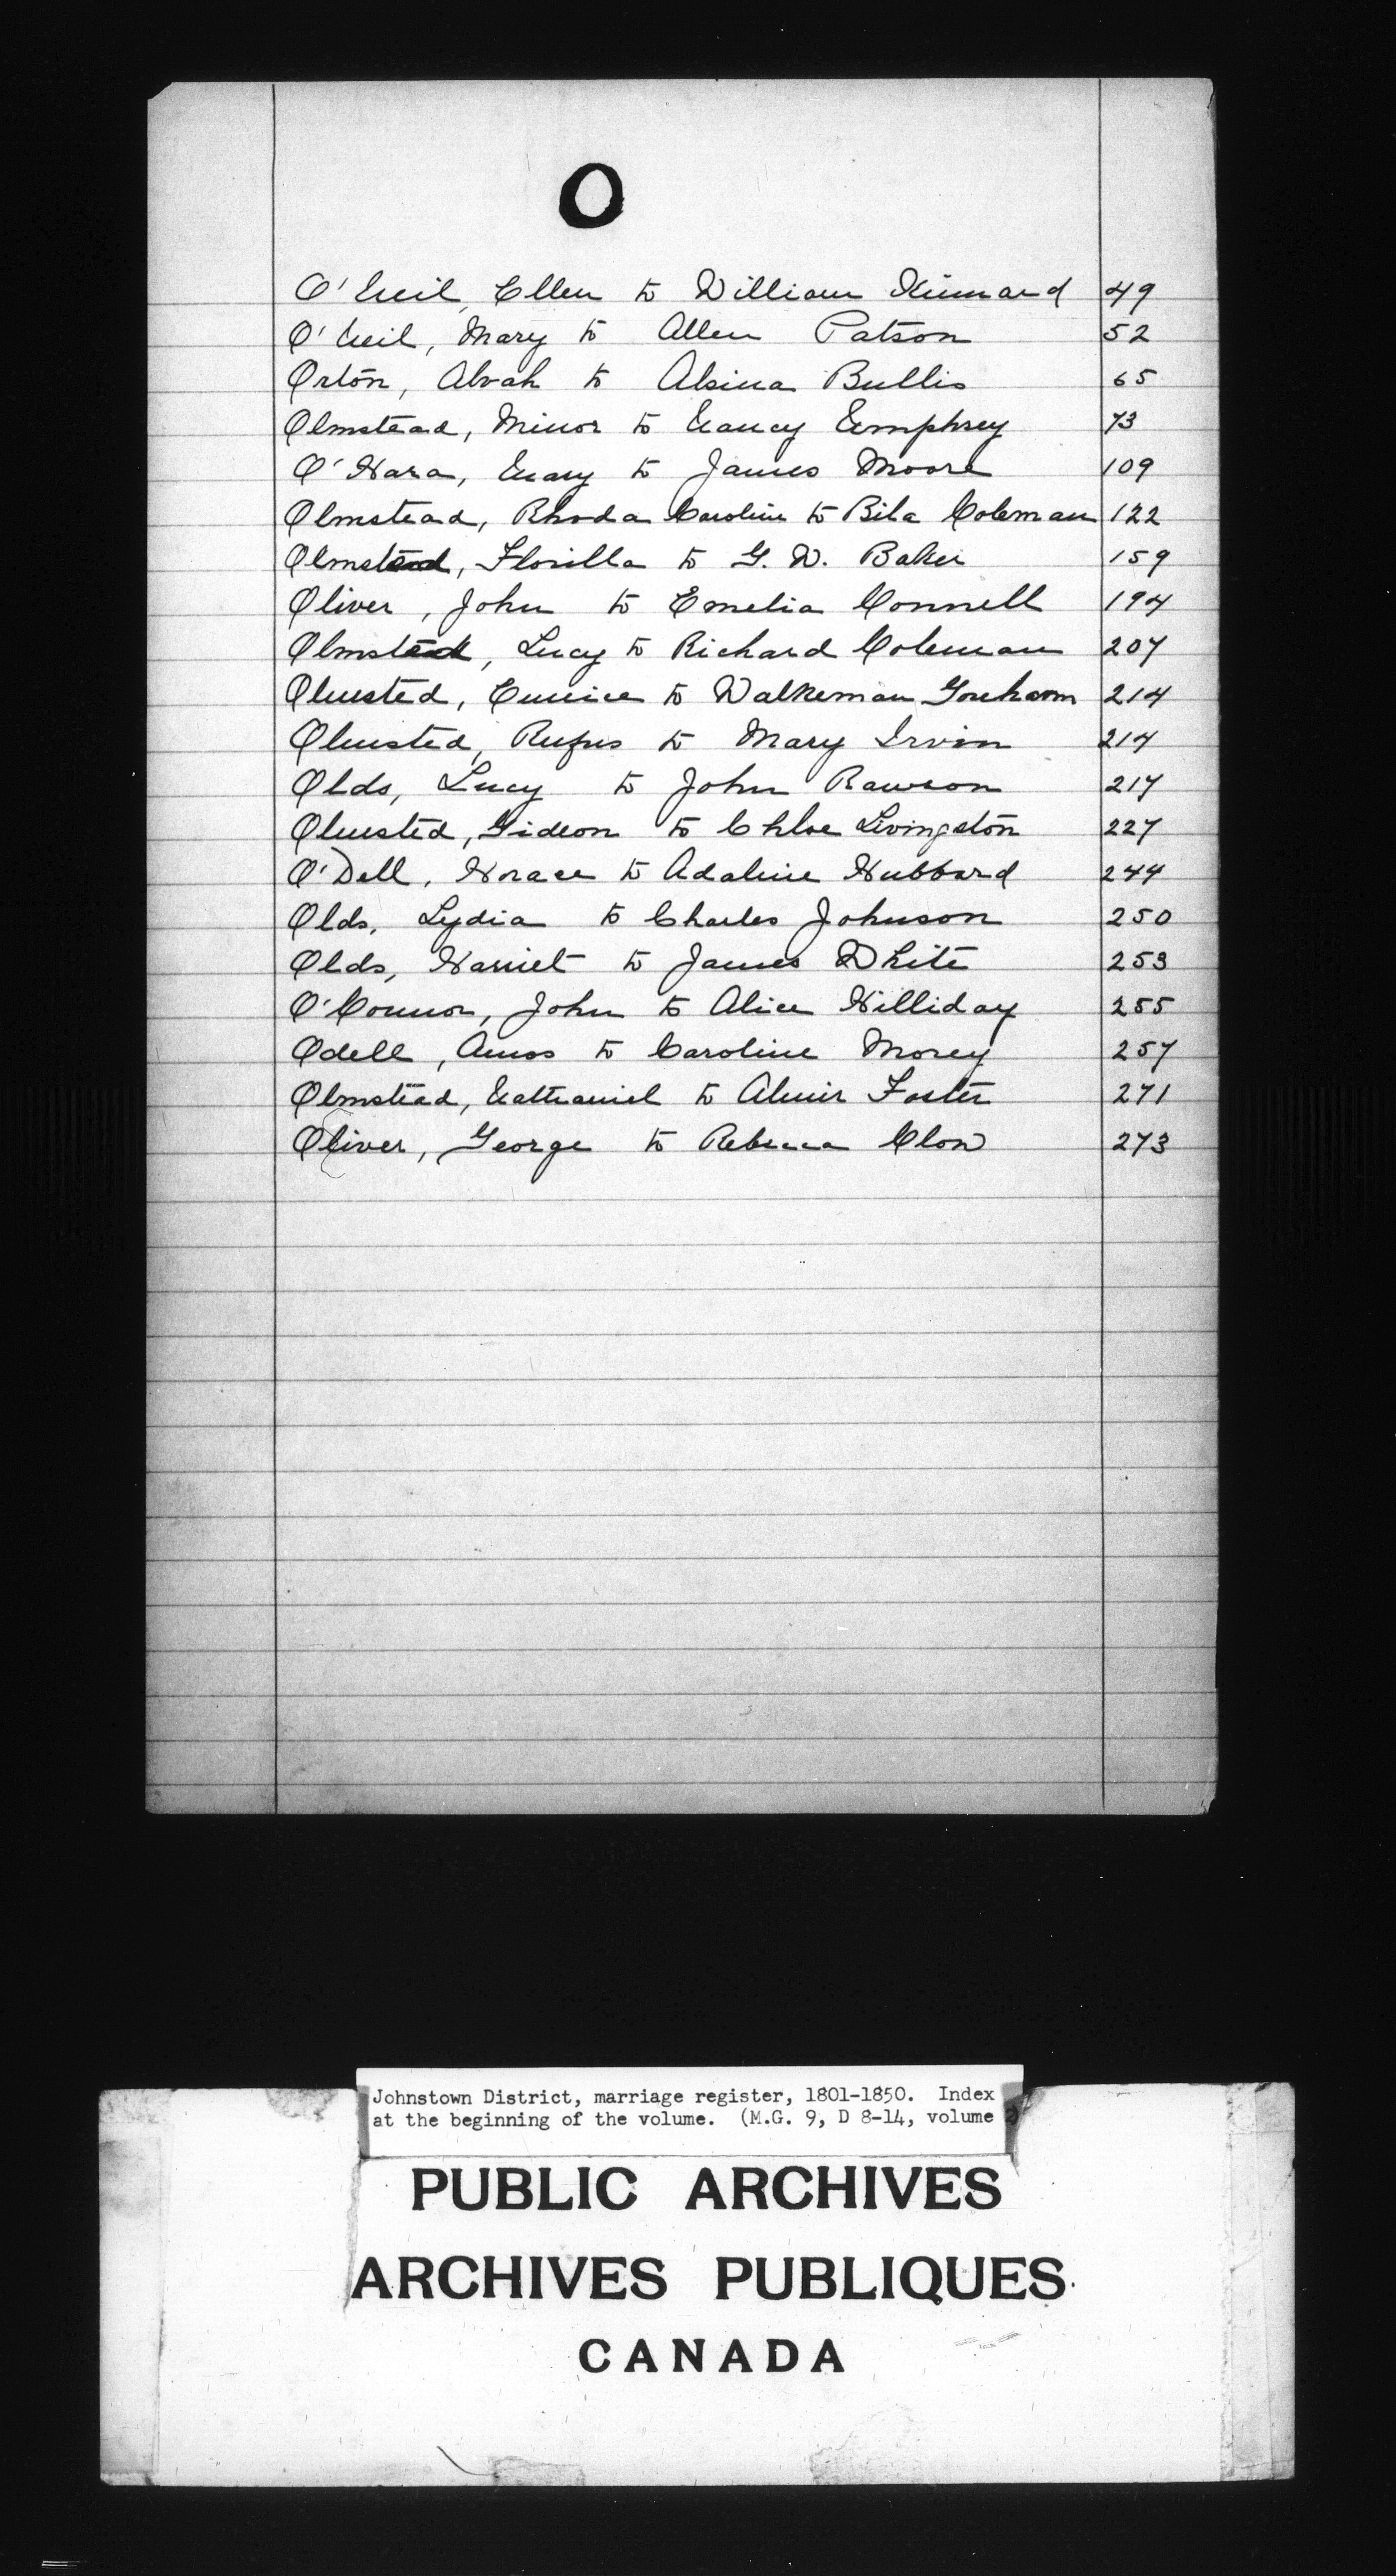 O
O'Neil, Ellen to William Kinnard 49
O'Neil, Mary to Allen Patson 52
Orton, Alvah to Alsina Bullis 65
Olmstead, Minor to Nancy Emphrey 73
O'Hara, Mary to James Moore 109
Olmstead, Rhoda Caroline to Bila Coleman 122
Olmstead, Florilla to G. W. Baker 159
Oliver, John to Emelia Connell 194
Olmstead, Lucy to Richard Coleman 207
Olmsted, Eunice to Walkeman 214
Olmsted, Rufus to Mary Irvin 214
Olds, Lucy to John Rawson 217
Olmsted, Gideon to Chloe Livingston 227
O'Dell, Horace to Adaline Hubbard 244
Olds, Lydia to Charles Johnson 250
Olds, Harriet to James White 253
O'Connor, John to Alice Hilliday 255
Odell, Amos to Caroline Morey 257
Olmstead, Nathaniel to Almir Foster 271
Oliver, George to Rebecca Clow 273
Johnstown District, marriage register, 1801-1850. Index
at the beginning of the volume. (M.G. 9, D 8-14, volume 2
PUBLIC ARCHIVES
ARCHIVES PUBLIQUES
CANADA